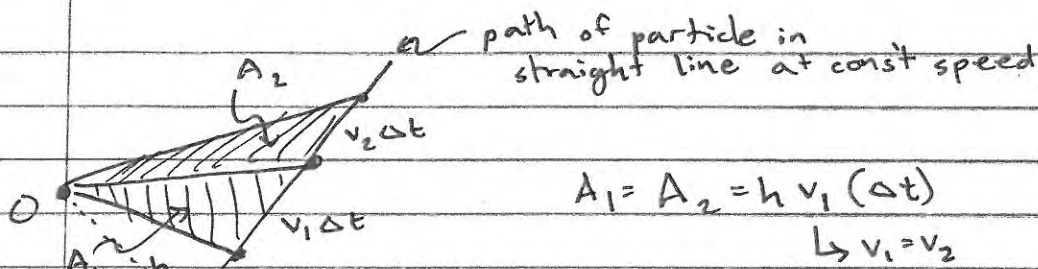 path of particle in
straight line at const speed
A₂
v₂Δt
A₁ = A₂ = h v₁ (Δt)
O
v₁Δt
↳ v₁ = v₂
A
h